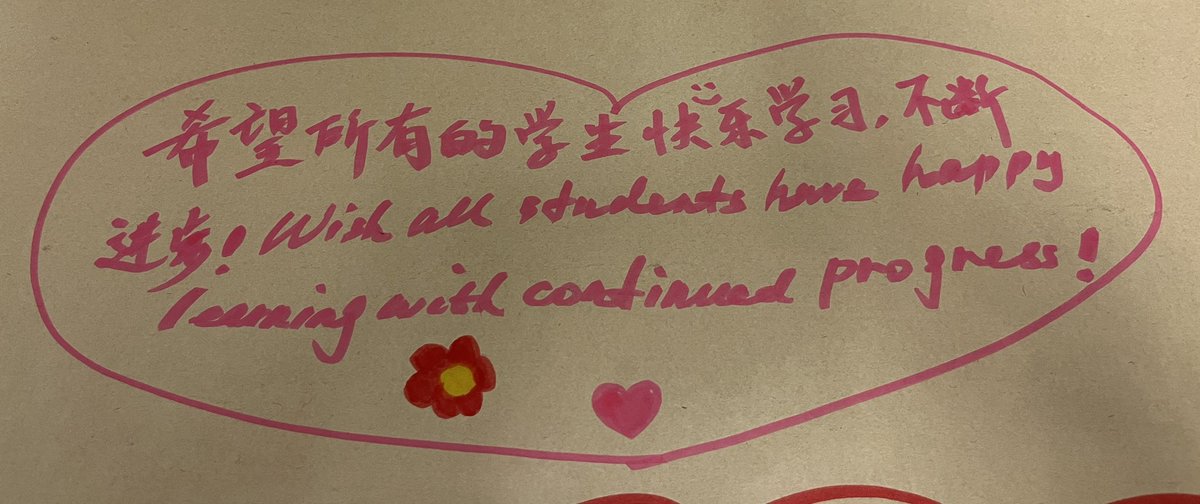 希望所有的学生快乐学习,不断
进步! Wish all students have happy
learning with continued progress!